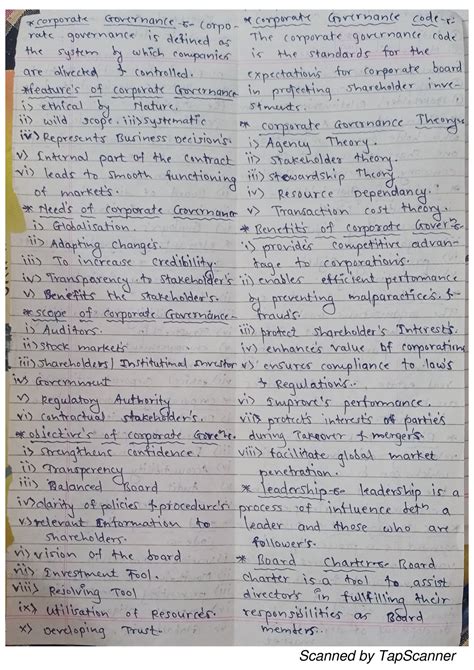 * corporate Governance :- corpo-
rate governance is defined as
the system by which companies
are directed & controlled.
* feature's of corporate Governance
i) ethical by Nature.
ii) wild scope. iii) systematic
iv) Represents Business decision's.
v) Internal part of the contract
vi) leads to smooth functioning
of market's.
* Need's of corporate Governance
i) Globalisation.
ii) Adapting changes.
iii) To increase credibility.
iv) Transparency to stakeholder's
v) Benefits the stakeholder's.
* scope of corporate Governance-
i) Auditors.
ii) stock market's
iii) shareholders/ Institutional Investor
iv) Government
v) Regulatory Authority
vi) contractual stakeholder's.
* objective's of corporate
i) strengthens confidence.
ii) Transperency
iii) Balanced Board
iv) clarity of policies & procedure's
v) relevant Information to
shareholders.
vi) vision of the board
vii) Investment Tool.
viii) Resolving Tool
ix) Utilisation of Resources.
x) Developing Trust.
* corporate Governance code :-
The corporate governance code
is the standards for the
expectations for corporate board
in projecting shareholder inve-
stments.
* corporate Governance Theory
i) Agency Theory.
ii) stakeholder theory.
iii) stewardship Theory
iv) Resource Dependancy.
v) Transaction cost theory.
* Benefits of corporate
i) provides competitive advan-
tage to corporations.
ii) enables efficient performance
by preventing malparactices &
fraud's.
iii) protect shareholder's Interests.
iv) enhance's value of corporation
v) ensures compliance to law's
& Regulation's.
vi) Improve's performance.
vii) protect's interest's of parties
during Takeover & mergers
viii) facilitate global market
penetration.
* leadership :- leadership is a
process of influence betn a
leader and those who are
follower's.
* Board charter :- Board
charter is a tool to assist
directors in fulfilling their
responsibilities as Board
members.
Scanned by TapScanner